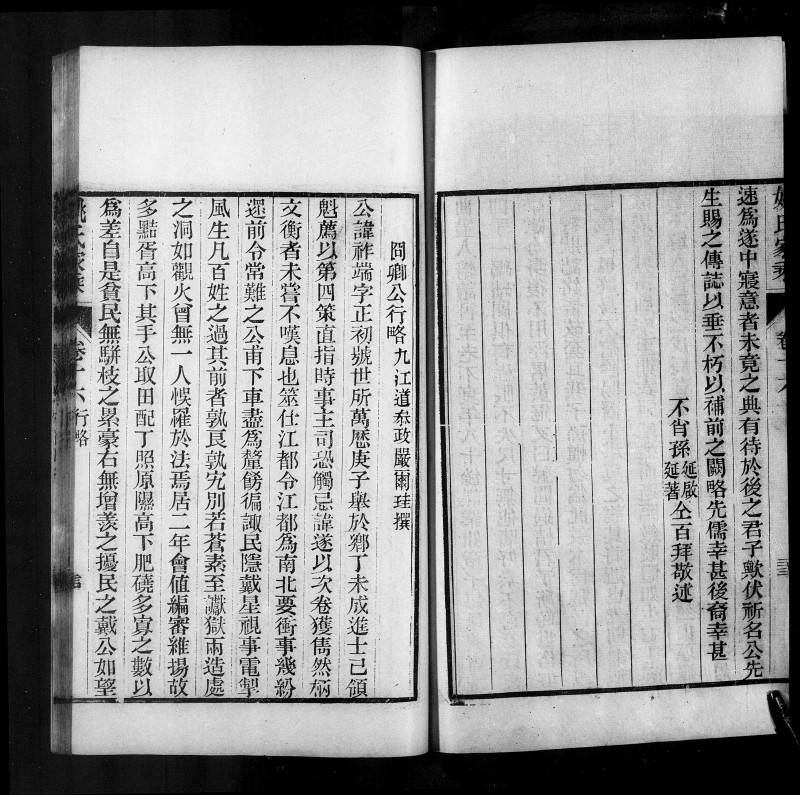 姚氏家乘
卷十六
速為遂中寢意者未竟之典有待於後之君子歟伏祈名公先
生賜之傳誌以垂不朽以補前之闕略先儒幸甚後裔幸甚
不肖孫延啟延著仝百拜敬述
冏卿公行略九江道叅政嚴爾珪撰
公諱祚端字正初號世所萬曆庚子舉於鄉丁未成進士已領
魁薦以第四策直指時事主司恐觸忌諱遂以次卷獲雋然柄
文衡者未嘗不嘆息也筮仕江都令江都為南北要衝事幾紛
遝前令常難之公甫下車盡為釐飭徧諏民隱戴星視事電掣
風生凡百姓之過其前者孰良孰宄別若蒼素至讞獄兩造處
之洞如觀火曾無一人悞羅於法焉居二年會值編審維揚故
多黠胥高下其手公取田配丁照原隰高下肥磽多寡之數以
為差自是貧民無駢枝之累豪右無增羨之擾民之戴公如望
姚氏家乘
卷十六 行略